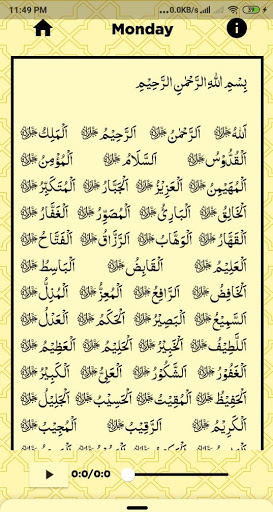 11:49 PM ...0.0KB/s 39
Monday
بِسْمِ اللهِ الرَّحْمٰنِ الرَّحِيْمِ
اَللهُ ﷻ اَلرَّحْمٰنُ ﷻ اَلرَّحِيْمُ ﷻ اَلْمَلِكُ ﷻ
اَلْقُدُّوْسُ ﷻ اَلسَّلَامُ ﷻ اَلْمُؤْمِنُ ﷻ
اَلْمُهَيْمِنُ ﷻ اَلْعَزِيْزُ ﷻ اَلْجَبَّارُ ﷻ اَلْمُتَكَبِّرُ ﷻ
اَلْخَالِقُ ﷻ اَلْبَارِئُ ﷻ اَلْمُصَوِّرُ ﷻ اَلْغَفَّارُ ﷻ
اَلْقَهَّارُ ﷻ اَلْوَهَّابُ ﷻ اَلرَّزَّاقُ ﷻ اَلْفَتَّاحُ ﷻ
اَلْعَلِيْمُ ﷻ اَلْقَابِضُ ﷻ اَلْبَاسِطُ ﷻ
اَلْخَافِضُ ﷻ اَلرَّافِعُ ﷻ اَلْمُعِزُّ ﷻ اَلْمُذِلُّ ﷻ
اَلسَّمِيْعُ ﷻ اَلْبَصِيْرُ ﷻ اَلْحَكَمُ ﷻ اَلْعَدْلُ ﷻ
اَللَّطِيْفُ ﷻ اَلْخَبِيْرُ ﷻ اَلْحَلِيْمُ ﷻ اَلْعَظِيْمُ ﷻ
اَلْغَفُوْرُ ﷻ اَلشَّكُوْرُ ﷻ اَلْعَلِيُّ ﷻ اَلْكَبِيْرُ ﷻ
اَلْحَفِيْظُ ﷻ اَلْمُقِيْتُ ﷻ اَلْحَسِيْبُ ﷻ اَلْجَلِيْلُ ﷻ
اَلْكَرِيْمُ ﷻ اَلرَّقِيْبُ ﷻ اَلْمُجِيْبُ ﷻ
0:0/0:0